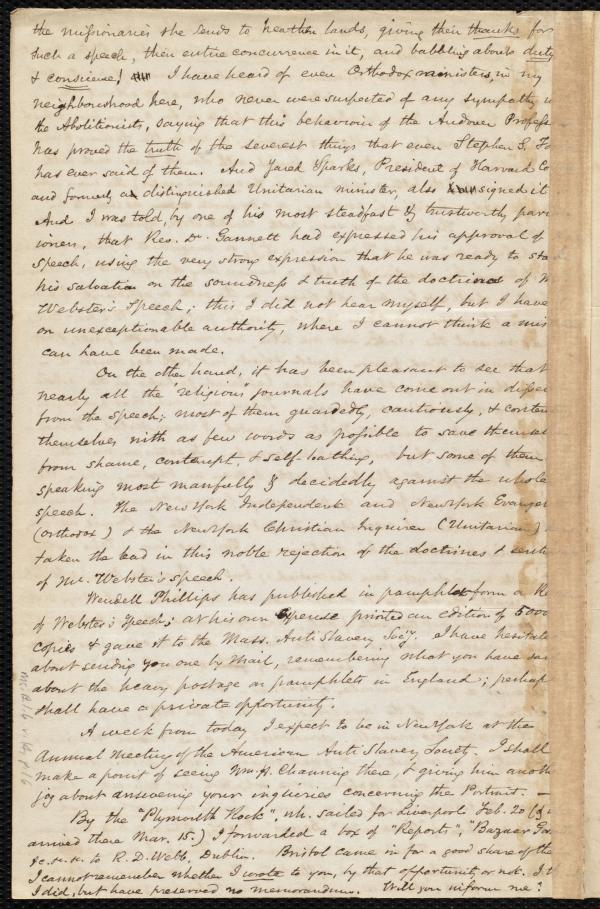 the missionaries she sends to heathen lands, giving their thanks for
such a speech, their entire concurrence in it, and babbling about duty
& conscience! I have heard of even Orthodox ministers, in my
neighbourhood here, who never were suspected of any sympathy
the Abolitionists, saying that this behaviour of the Andover Profess
has proved the truth of the severest things that even Stephen S. Fo
has ever said of them. And Jared Sparks, President of Harvard Co
and formerly a distinguished Unitarian minister, also signed it
And I was told, by one of his most steadfast & trustworthy pari
ioners, that Rev. Dr. Gannett had expressed his approval of
speech, using the very strong expression that he was ready to sta
his salvation on the soundness & truth of the doctrines of
Webster's Speech; this I did not hear myself, but I have
on unexceptionable authority, where I cannot think a mis
can have been made.
On the other hand, it has been pleasant to see that
nearly all the "religious" journals have come out in disse
from the speech; most of them guardedly, cautiously, & conten
themselves with as few words as possible to save themsel
from shame, contempt, & self loathing, but some of them
speaking most manfully & decidedly against the whole
speech. The New York Independent and New York Evange
(Orthodox) & the New York Christian Inquirer (Unitarian)
taken the lead in this noble rejection of the doctrines & senti
of Mr. Webster's speech.
Wendell Phillips has published in pamphlet form a Re
of Webster's Speech; at his own expense printed an edition of 5000
copies & gave it to the Mass. Anti Slavery Socy. I have hesitate
about sending you one by mail, remembering what you have sai
about the heavy postage on pamphlets in England; perhaps
shall have a private opportunity.
A week from today I expect to be in New York at the
Annual Meeting of the American Anti Slavery Society. I shall
make a point of seeing Wm. H. Channing there, & giving him anoth
jog about answering your inquiries concerning the Portrait. —
By the "Plymouth Rock", wh. sailed for Liverpool Feb. 20 (&
arrived there Mar. 15.) I forwarded a box of "Reports", "Bazaar Gaz
&c. &c. &c. to R. D. Webb, Dublin. Bristol came in for a good share of the
I cannot remember whether I wrote to you, by that opportunity, or not. I
I did, but have preserved no memorandum. Will you inform me?